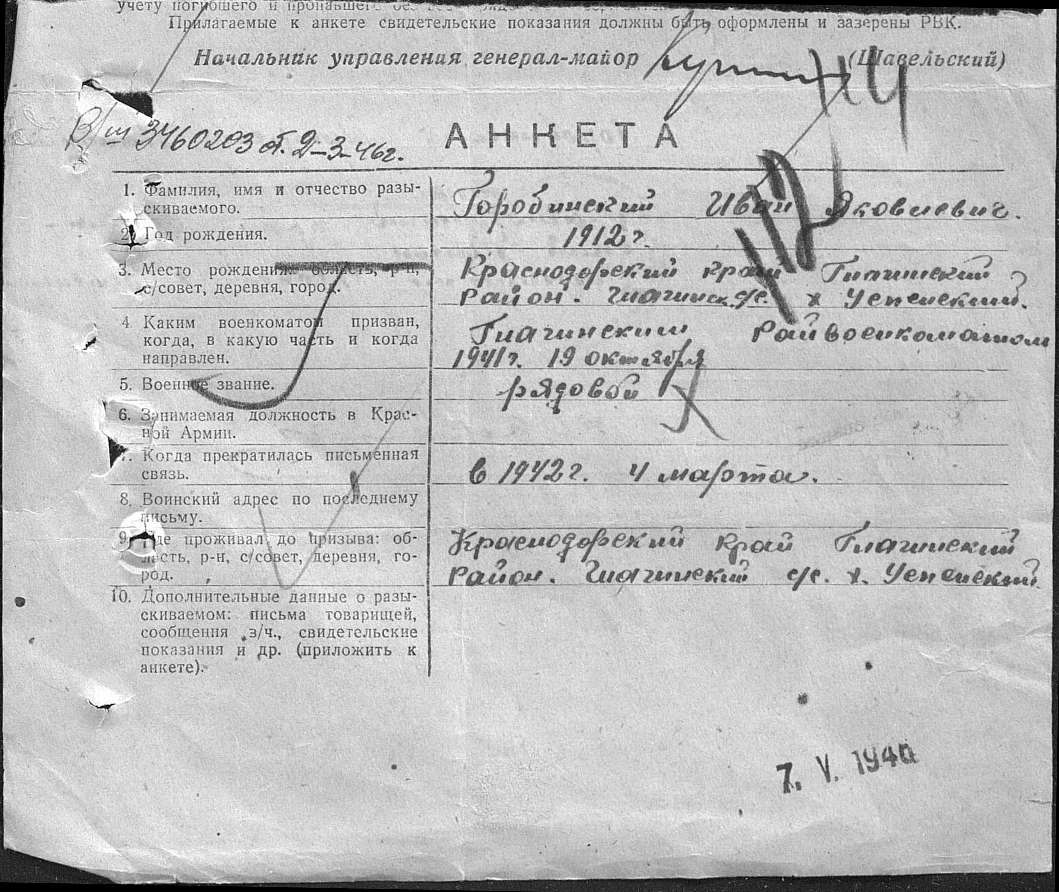 учету погибшего и пропавшего без
Прилагаемые к анкете свидетельские показания должны быть оформлены и заверены РВК.
Начальник управления генерал-майор (Шавельский)
114
В/ш 3460203 от 2-3-46г.
АНКЕТА
112
1. Фамилия, имя и отчество разы-
скиваемого.
Горобинский Иван Яковлевич.
2. Год рождения.
1912 г.
3. Место рождения: область, р-н,
с/совет, деревня, город.
Краснодарский край Гиагинский
район. Гиагинск. с/с. х Успенский.
4 Каким военкоматом призван,
когда, в какую часть и когда
направлен.
Гиагинским Райвоенкоматом
1941г. 19 октября
5. Военное звание.
рядовой
6. Занимаемая должность в Крас-
ной Армии.
7. Когда прекратилась письменная
связь.
в 1942 г. 4 марта.
8. Воинский адрес по последнему
письму.
9. Где проживал до призыва: об-
ласть, р-н, с/совет, деревня, го-
род.
Краснодарский край Гиагинский
район. Гиагинский с/с. х. Успенский
10. Дополнительные данные о разы-
скиваемом: письма товарищей,
сообщения з/ч., свидетельские
показания и др. (приложить к
анкете).
7. V. 194